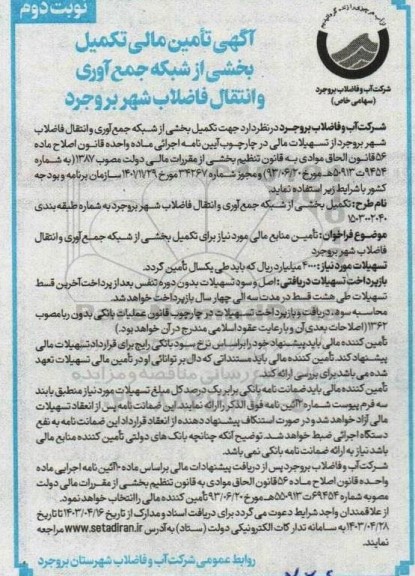 نوبت دوم
آب هر جریان زندگی
آگهی تأمین مالی تکمیل
بخشی از شبکه جمع آوری
و انتقال فاضلاب شهر بروجرد
شرکت آب و فاضلاب بروجرد
(سهامی خاص)
شرکت آب و فاضلاب بروجرد در نظر دارد جهت تکمیل بخشی از شبکه جمع آوری و انتقال فاضلاب
شهر بروجرد از تسهیلات مالی در چارچوب آیین نامه اجرائی ماده واحده قانون اصلاح ماده
۵۶ قانون الحاق موادی به قانون تنظیم بخشی از مقررات مالی دولت مصوب ۱۳۸۷ (به شماره
۶۹۴۵۴ت۵۰۹۱۳هـ مورخ ۹۳/۰۶/۲۰) و مجوز شماره ۳۴۲۶۷ مورخ ۱۴۰۱/۱/۲۹ سازمان برنامه و بودجه
کشور با شرایط زیر استفاده نماید.
نام طرح: تکمیل بخشی از شبکه جمع آوری و انتقال فاضلاب شهر بروجرد به شماره طبقه بندی
۱۵۰۳۰۰۲۰۴۰
موضوع فراخوان: تأمین منابع مالی مورد نیاز برای تکمیل بخشی از شبکه جمع آوری و انتقال
فاضلاب شهر بروجرد
تسهیلات مورد نیاز: ۴۰۰۰ میلیارد ریال که باید طی یکسال تأمین گردد.
بازپرداخت تسهیلات دریافتی: اصل و سود تسهیلات بدون دوره تنفس بعد از پرداخت آخرین قسط
تسهیلات طی هشت قسط در مدت سه الی چهار سال بازپرداخت خواهد شد.
محاسبه سود، دریافت و بازپرداخت تسهیلات در چارچوب قانون عملیات بانکی بدون ربا مصوب
۱۳۶۲ (اصلاحات بعدی آن و با رعایت عقود اسلامی مندرج در آن خواهد بود.)
تأمین کننده مالی باید پیشنهاد خود را براساس نرخ سود بانکی رایج برای قرارداد تسهیلات مالی
پیشنهاد کند. تأمین کننده مالی باید مستنداتی که دال بر توانائی او در تأمین مالی تسهیلات تعهد
شده می باشد برای بررسی ارائه کند.
تأمین کننده مالی باید ضمانت نامه بانکی برابر یک درصد کل مبلغ تسهیلات مورد نیاز منطبق با بند
سه فرم پیوست شماره ۲ آئین نامه فوق الذکر را ارائه نمایند. این ضمانت نامه پس از انعقاد تسهیلات
مالی آزاد خواهد شد و در صورت استنکاف پیشنهاد دهنده از انعقاد قرارداد این ضمانت نامه به نفع
دستگاه اجرائی ضبط خواهد شد. توضیح آنکه چنانچه بانک های دولتی تأمین کننده منابع مالی
باشد نیاز به ارائه ضمانت نامه بانکی نمی باشد.
شرکت آب و فاضلاب بروجرد پس از دریافت پیشنهادات مالی براساس ماده ۱۰ آئین نامه اجرایی ماده
واحده قانون اصلاح ماده ۵۶ قانون الحاق موادی به قانون تنظیم بخشی از مقررات مالی دولت
مصوبه شماره ۶۹۴۵۴ت۵۵۰۹۱۳هـ مورخ ۹۳/۰۶/۲۰ تأمین کننده مالی را انتخاب خواهد نمود.
از علاقمندان واجد شرایط دعوت می گردد برای دریافت اسناد و مدارک از تاریخ ۱۴۰۳/۰۴/۱۶ تا تاریخ
۱۴۰۳/۰۴/۲۸ به سامانه تدارکات الکترونیکی دولت (ستاد) به آدرس www.setadiran.ir مراجعه
نمایند.
روابط عمومی شرکت آب و فاضلاب شهرستان بروجرد